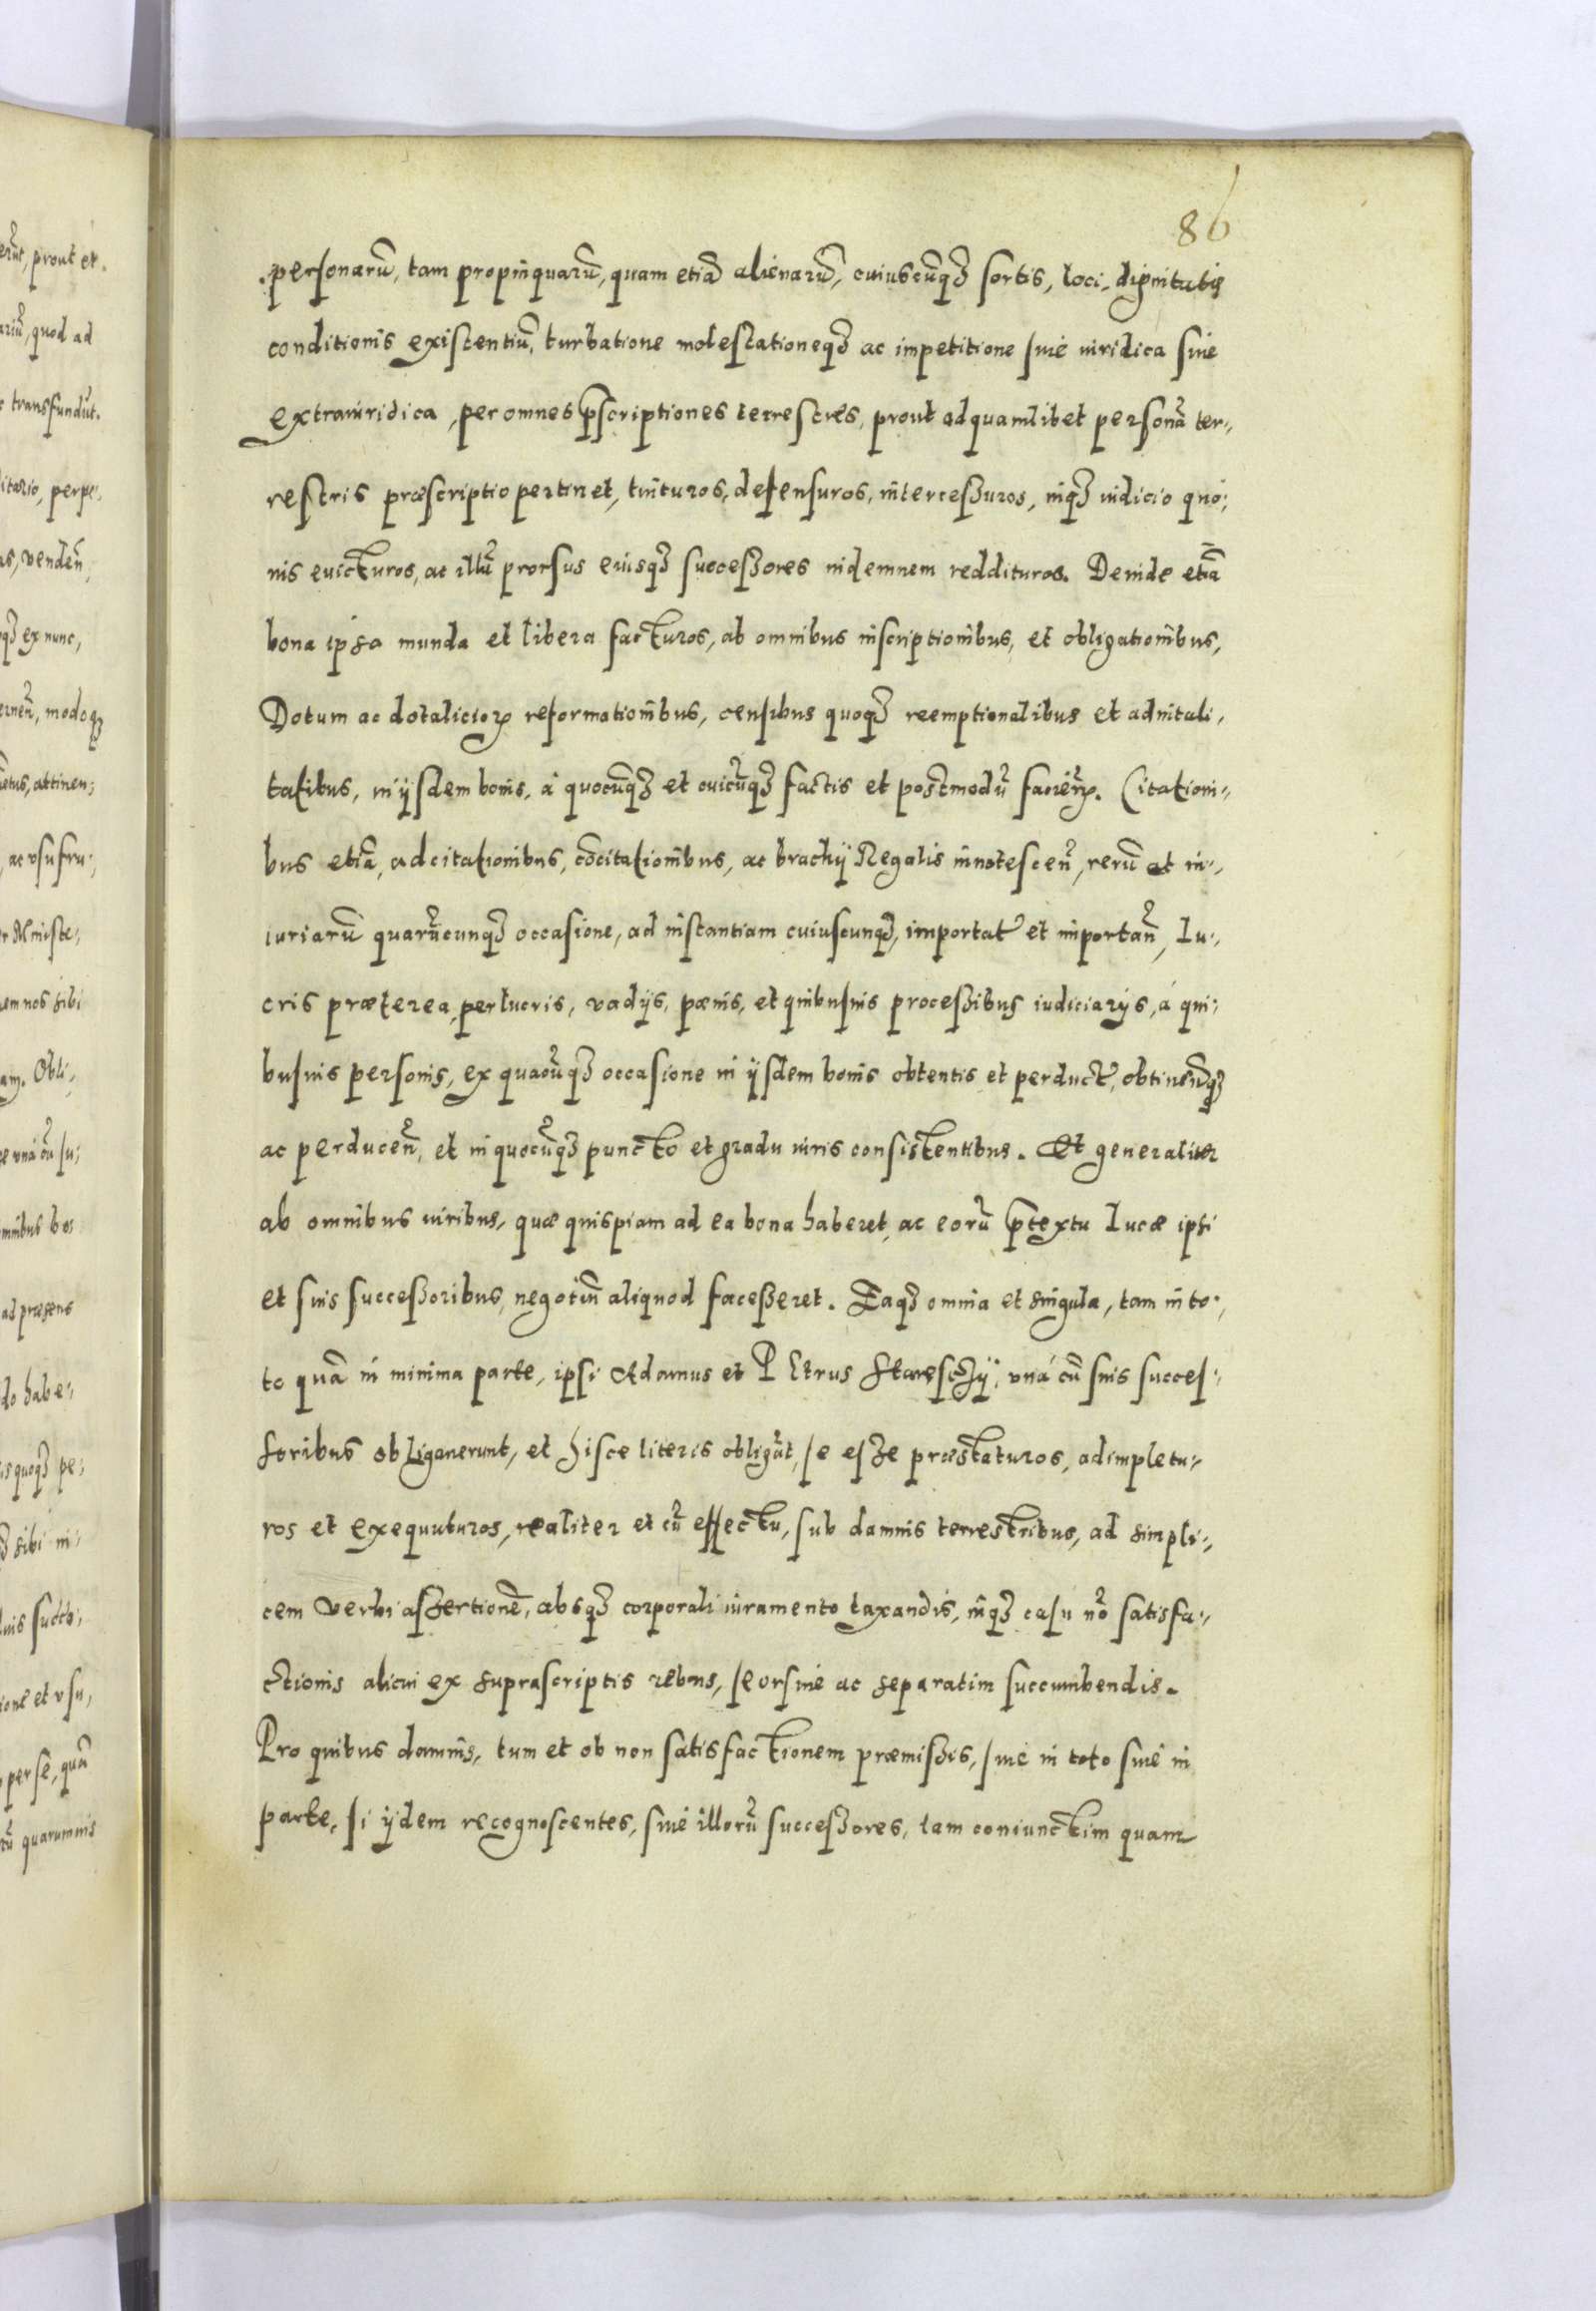 86
personarũ, tam propinquarũ, quam etiã alienarũ, cuiuscũqꝫ sortis, loci, dignitatis
conditionis existentiũ, turbatione molestationeqꝫ ac impetitione siue iuridica siue
extraiuridica, per omnes p̄scriptiones terrestres, prout ad quamlibet personã ter,,
restris præscriptio pertinet, tuituros, defensuros, intercessuros, inqꝫ iudicio quo;
uis euicturos, ac illũ prorsus eiusqꝫ successores indemnem reddituros. Deinde etiã
bona ipsa munda et libera facturos, ab omnibus inscriptionibus, et obligationibus,
Dotum ac dotalicioꝝ reformationibus, censibus quoqꝫ reemptionalibus et aduitali,
tatibus, in ijsdem bonis, à quocũqꝫ et cuicũqꝫ factis et postmodũ facieñ. Citationi,,
bus etiã, adcitationibus, cõcitationibus, ac brachij Regalis innotesceñ, rerũ et in,,
iuriarũ quarũcunqꝫ occasione, ad instantiam cuiuscunqꝫ, importat̃ et importañ, Lu,,
cris præterea, perlucris, vadijs, pœnis, et quibusuis processibus iudiciarijs, à qui;
busuis personis, ex quacũqꝫ occasione in ijsdem bonis obtentis et perduct̃, obtineñqꝫ
ac perduceñ, et in quocũqꝫ puncto et gradu iuris consistentibus. Et generaliter
ab omnibus iuribus, quæ quispiam ad ea bona haberet, ac eorũ p̄textu Lucæ ipsi
et suis successoribus, negotiũ aliquod facesseret. Eaqꝫ omnia et singula, tam in to,
to quã in minima parte, ipsi Adamus et Petrus Stareschij, vnà cũ suis succes,
soribus obligauerunt, et hisce literis obligãt, se esse præstaturos, adimpletu,,
ros et exequuturos, realiter et cũ effectu, sub damnis terrestribus, ad simpli,,
cem verbi assertionẽ, absqꝫ corporali iuramento taxandis, inqꝫ casu nõ satisfa,,
ctionis alicui ex suprascriptis rebus, seorsiue ac separatim succumbendis.
Pro quibus damnis, tum et ob non satisfactionem præmissis, siue in toto siue in
parte, si ijdem recognoscentes, siue illorũ successores, tam coniunctim quam